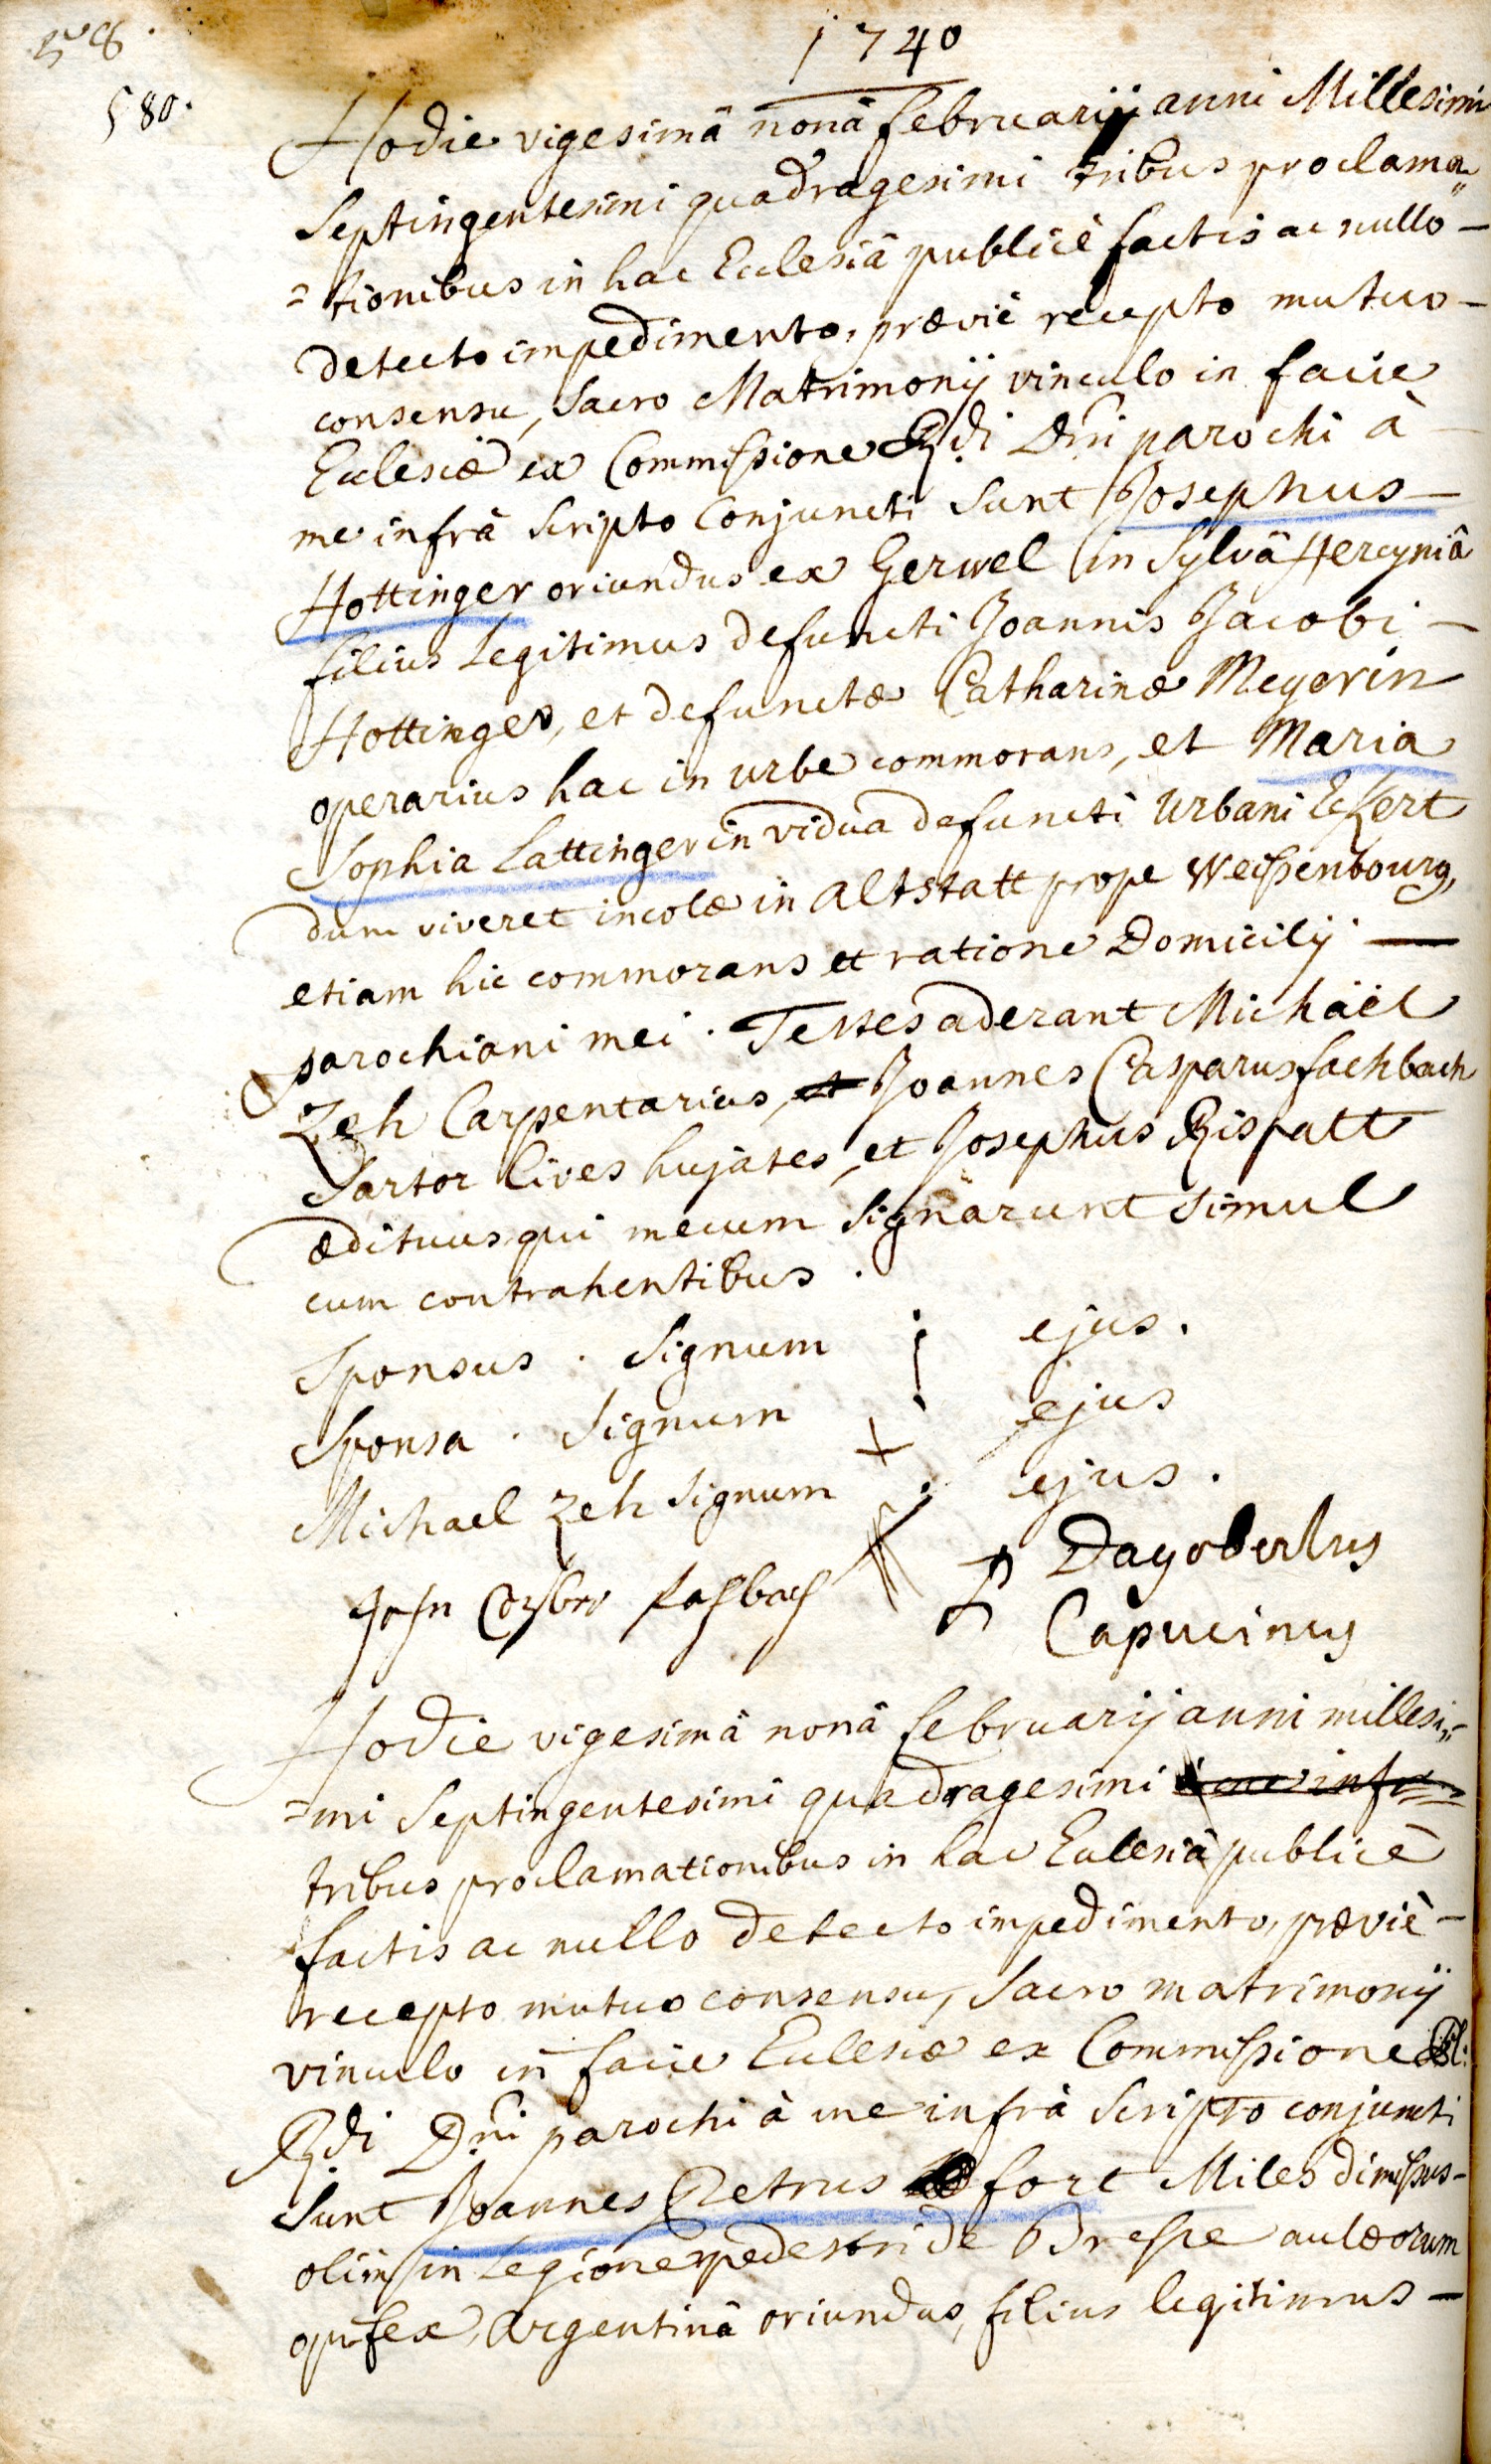 58.
1740
580.
Hodie vigesimâ nonâ februarij anni Millesimi
Septingentesimi quadragesimi tribus proclama„
=tionibus in hac Ecclesiâ publicè factis ac nullo –
detecto impedimento, prævie recepto mutuo –
consensu, Sacro Matrimonij vinculo in facie
Ecclesiæ ex Commissione Rdi Dni parochi à –
me infrà Scripto Conjuncti Sunt Josephus –
Hottinger oriundus ex Gerwel in Sylvâ Hercyniâ
filius Legitimus defuncti Joannis Jacobi –
Hottinger, et defunctæ Catharinæ Meyerin
operarius hac in urbe commorans, et Maria
Sophia Lattingerin vidua defuncti Urbani Eckert
dum viveret incolæ in altstatt prope Weissenbourg,
etiam hic commorans et ratione Domicilij —
parochiani mei. Testes aderant Michaël
Zeh Carpentarius, et Joannes Casparus fachbach
Sartor Cives hujates, et Josephus Rispatt
ædituus qui mecum Signârunt Simul
cum contrahentibus.
Sponsus. Signum ejus.
Sponsa. Signum + ejus
Michael Zeh Signum ejus.
Dagobertus
Capucinus
Hodie vigesimâ nonâ februarij anni millesi„
=mi Septingentesimi quadragesimi à me infra
tribus proclamationibus in hac Ecclesiâ publicè
factis ac nullo detecto impedimento, præviè –
recepto mutuo consensu, Sacro matrimonij
vinculo in facie Ecclesiæ ex Commissione
Rdi Dni parochi à me infrà Scripto conjuncti
Sunt Joannes Petrus fort Miles dimissus –
olim in Legione pedestri de Bresse aulæorum
opifex, Argentinâ oriundus, filius legitimus –